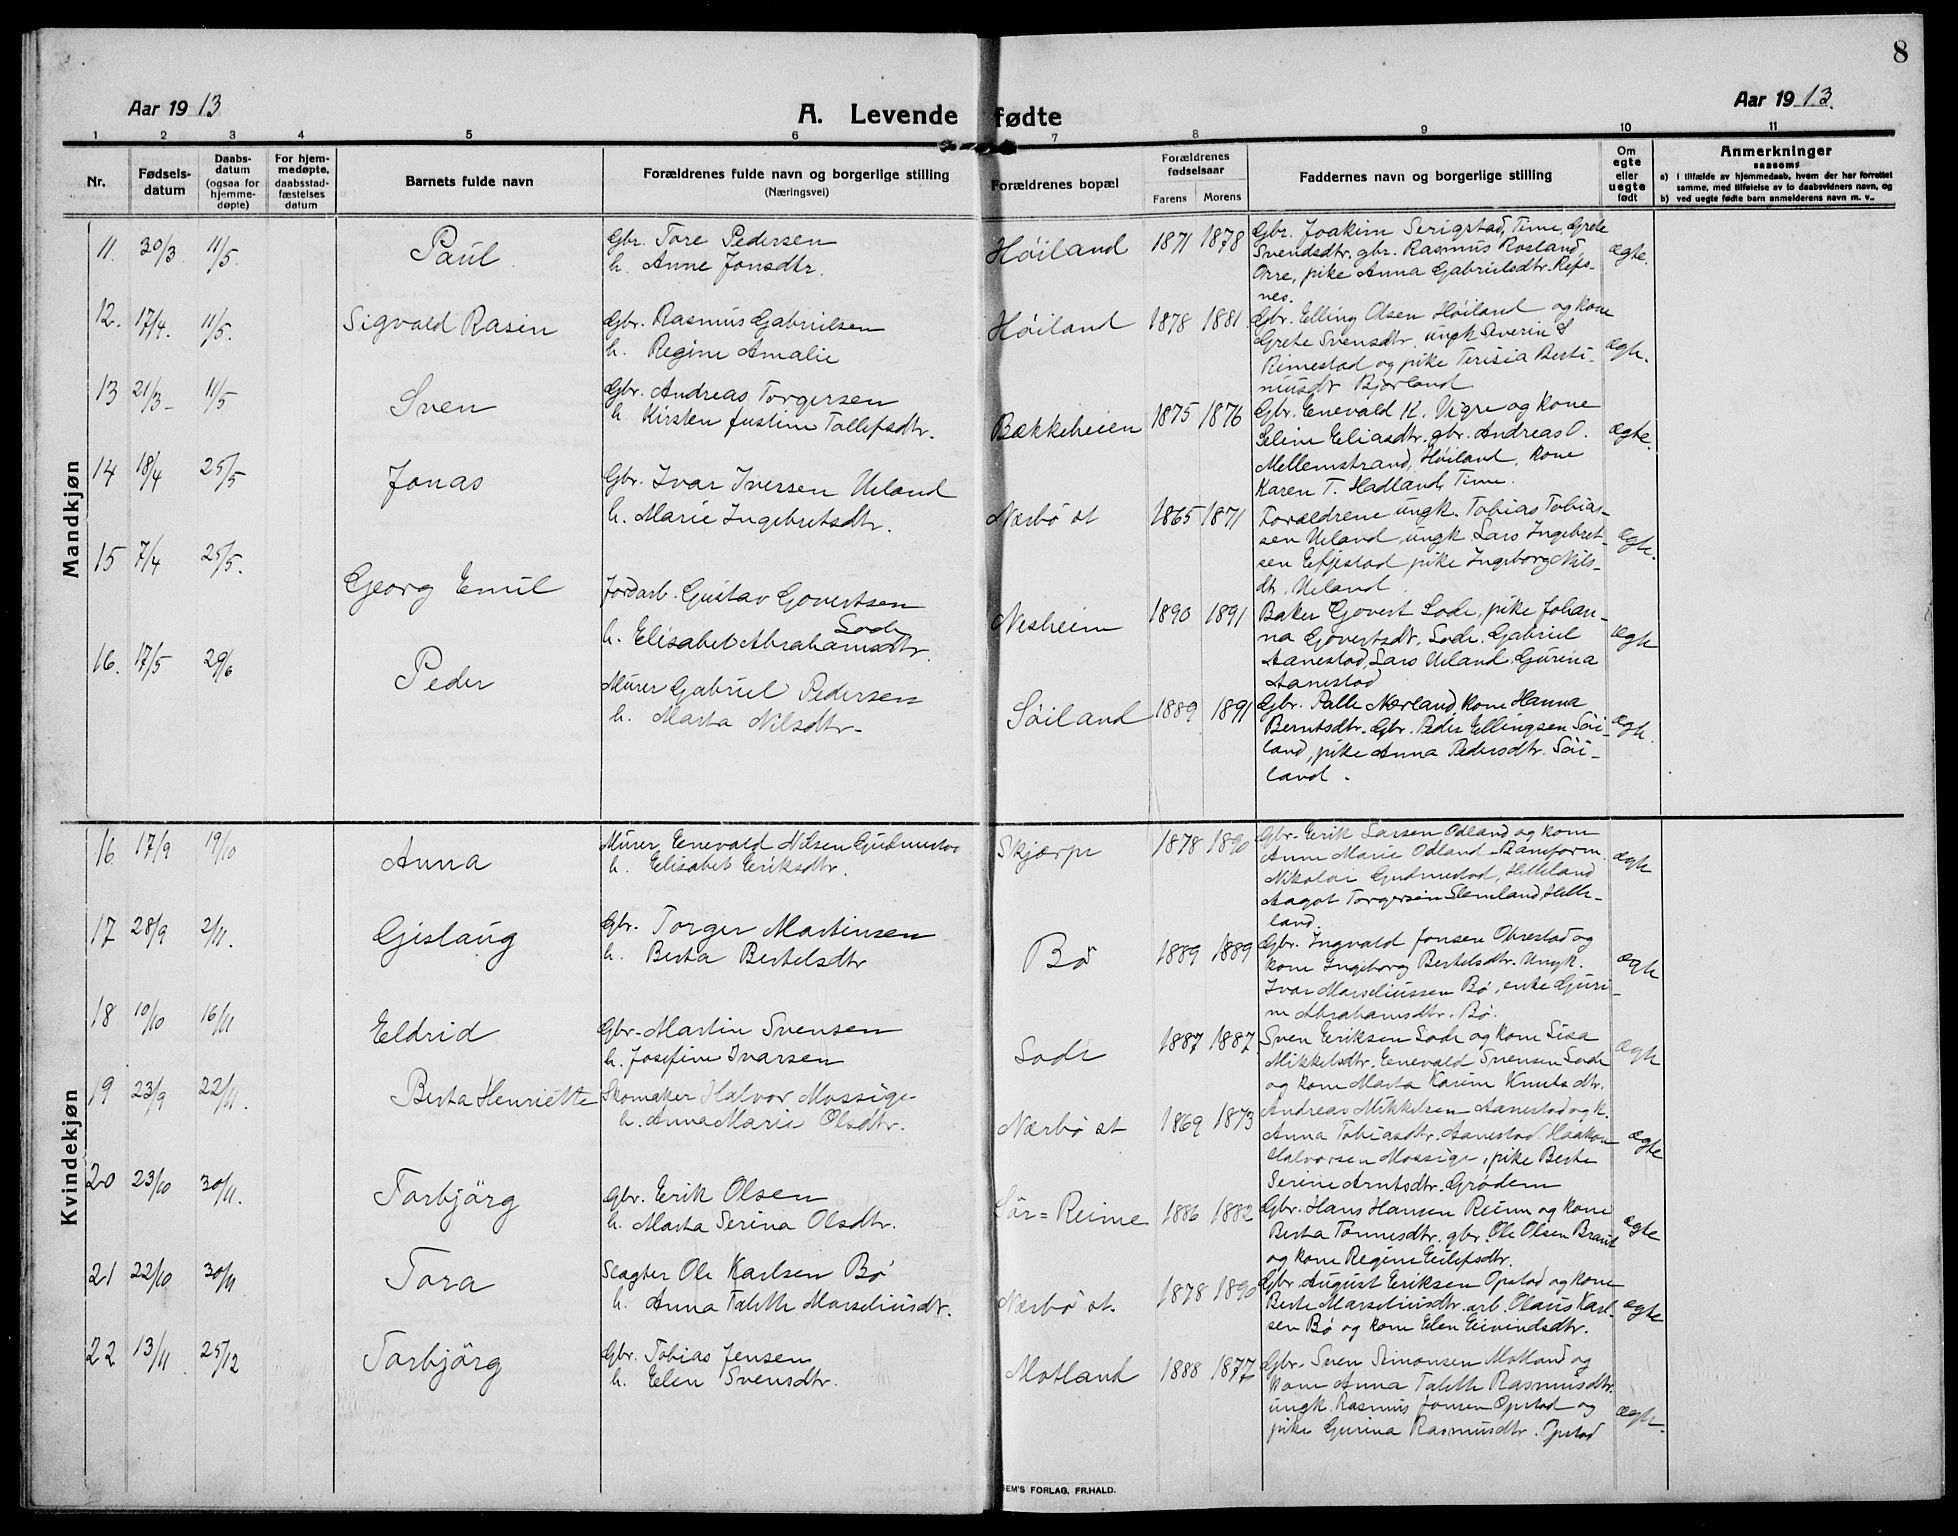 8
Aar 1913
A. Levende fødte
Aar 1913.
1 2 3 4 5 6 7 8 9 10 11
Nr.
Fødsels-
datum
Daabs-
datum
(ogsaa for
hjemme-
døpte)
For hjem-
medøpte,
daabsstad-
fæstelses
datum
Barnets fulde navn
Forældrenes fulde navn og borgerlige stilling
(Næringsvei)
Forældrenes bopæl
Forældrenes
fødselsaar
Farens Morens
Faddernes navn og borgerlige stilling
Om
egte
eller
uegte
født
Anmerkninger
saasoms
a) I tilfælde av hjemmedaab, hvem der har forrettet
samme, med tilføielse av to daabsvidners navn, og
b) ved uegte fødte barn anmelderens navn m. v..
Mandkjøn
11. 30/3 11/5. Paul
Gbr. Tore Pedersen
h. Anne Jonsdtr.
Høiland 1871 1878
Gbr. Joakim Serigstad, Time, Grete
Svendsdtr. gbr. Rasmus Rosland,
Orre, pike Anna Gabrielsdtr. Refs-
nes.
ægte.
12. 17/4. 11/5. Sigvald Rasin
Gbr. Rasmus Gabrielsen
h. Regine Amalie
Høiland 1878 1881.
Gbr. Elling Olsen Høiland og kone
Grete Svensdtr. ungk Severin S
Rimestad og pike Terisia Berti-
niusdtr Bjorland
ægte.
13 21/3 11/5 Sven
Gbr. Andreas Torgersen
h. Kirsten Justine Tollefsdtr.
Bækkeheien 1875 1876
Gbr. Enevald K. Vigre og kone
Seline Eliasdtr. gbr. Andreas O.
Mellemstrand, Høiland, kone
Karen T. Hadland, Time.
ægte.
14 18/4 25/5 Jonas
Gbr. Ivar Iversen Ueland
h. Marie Ingebretsdtr.
Nærbø st 1865 1871
Forældrene ungk. Tobias Tobias-
sen Ueland, ungk Lars Ingebret-
sen Efjestad pike Ingeborg Nils-
dtr. Ueland.
ægte.
15 7/4 25/5. Georg Emil
Jordarb. Gustav Govertsen
Sode
h. Elisabet Abrahamsdtr.
Nesheim 1890 1891
Baker Govert Sode, pike Johan-
na Govertsdtr. Sode. Gabriel
Aanestad, Lars Ueland, Gurina
Aanestad
ægte
16. 17/5 29/6 Peder
Murer Gabriel Pedersen
h. Marta Nilsdtr.
Søiland 1889 1891
Gbr. Palle Nærland, kone Hanna
Berntsdtr. Gbr. Peder Ellingsen Søi-
land, pike Anna Pedersdtr. Søi-
land.
ægte.
Kvindekjøn
16 17/9 19/10 Anna
Murer Enevald Nilsen Gudmestad
h. Elisabet Eriksdtr.
Skjærpe 1878 1890
Gbr. Erik Larsen Odland og kone
Anne Marie Odland. Baneform.
Nikolai Gudmestad, Helleland
Aagot Torgersen Slemland, Helle-
land.
ægte
17 28/9 2/11. Gislaug
Gbr. Torger Martinsen
h. Berta Bertelsdtr
Bø 1889 1889
Gbr. Ingvald Jonsen Obrestad og
kone Ingeborg Bertelsdtr. Ungk.
Ivar Marseliussen Bø, enke Guri-
ne Abrahamsdtr. Bø.
ægte
18 10/10 16/11 Eldrid
Gbr. Martin Svensen
h. Josefine Ivarsen
Sode 1887 1887
Sven Eriksen Sode og kone Lisa
Mikkelsdtr. Enevald Svensen Sode
og kone Marta Karine Knutsdtr.
ægte
19 23/9 22/11. Berta Henriette
Skomaker Halvor Mossige
h. Anna Marie Olsdtr.
Nærbø st 1869 1873
Andreas Mikkelsen Aanestad og k.
Anna Tobiasdtr. Aanestad. Haakon
Halvorsen Mossige, pike Berte
Serine Arntsdtr. Grødem
ægte
20 23/10 30/11. Torbjörg
Gbr. Erik Olsen
h. Marta Serina Olsdtr.
Sør=Reime 1886 1882
Gbr. Hans Hansen Reime og kone
Berta Tønnesdtr. gbr. Ole Olsen Braut
og kone Regine Eilefsdtr.
ægte
21 22/10 30/11 Tora
Slagter Ole Karlsen Bø
h. Anna Talette Marseliusdtr.
Nærbø st. 1878 1890
Gbr August Eriksen Opstad og kone
Berte Marseliusdtr. arb. Olaus Karl-
sen Bø og kone Elen Eivindsdtr.
ægte
22 13/11 25/12 Torbjörg
Gbr. Tobias Jensen
h. Elen Svensdtr.
Motland 1888 1877
Gbr. Sven Simonsen Motland og
kone Anna Talette Rasmusdtr.
ungk. Rasmus Jonsen Opstad og
pike Gurina Rasmusdtr. Opstad
ægte.
SEM'S FORLAG, FR.HALD.